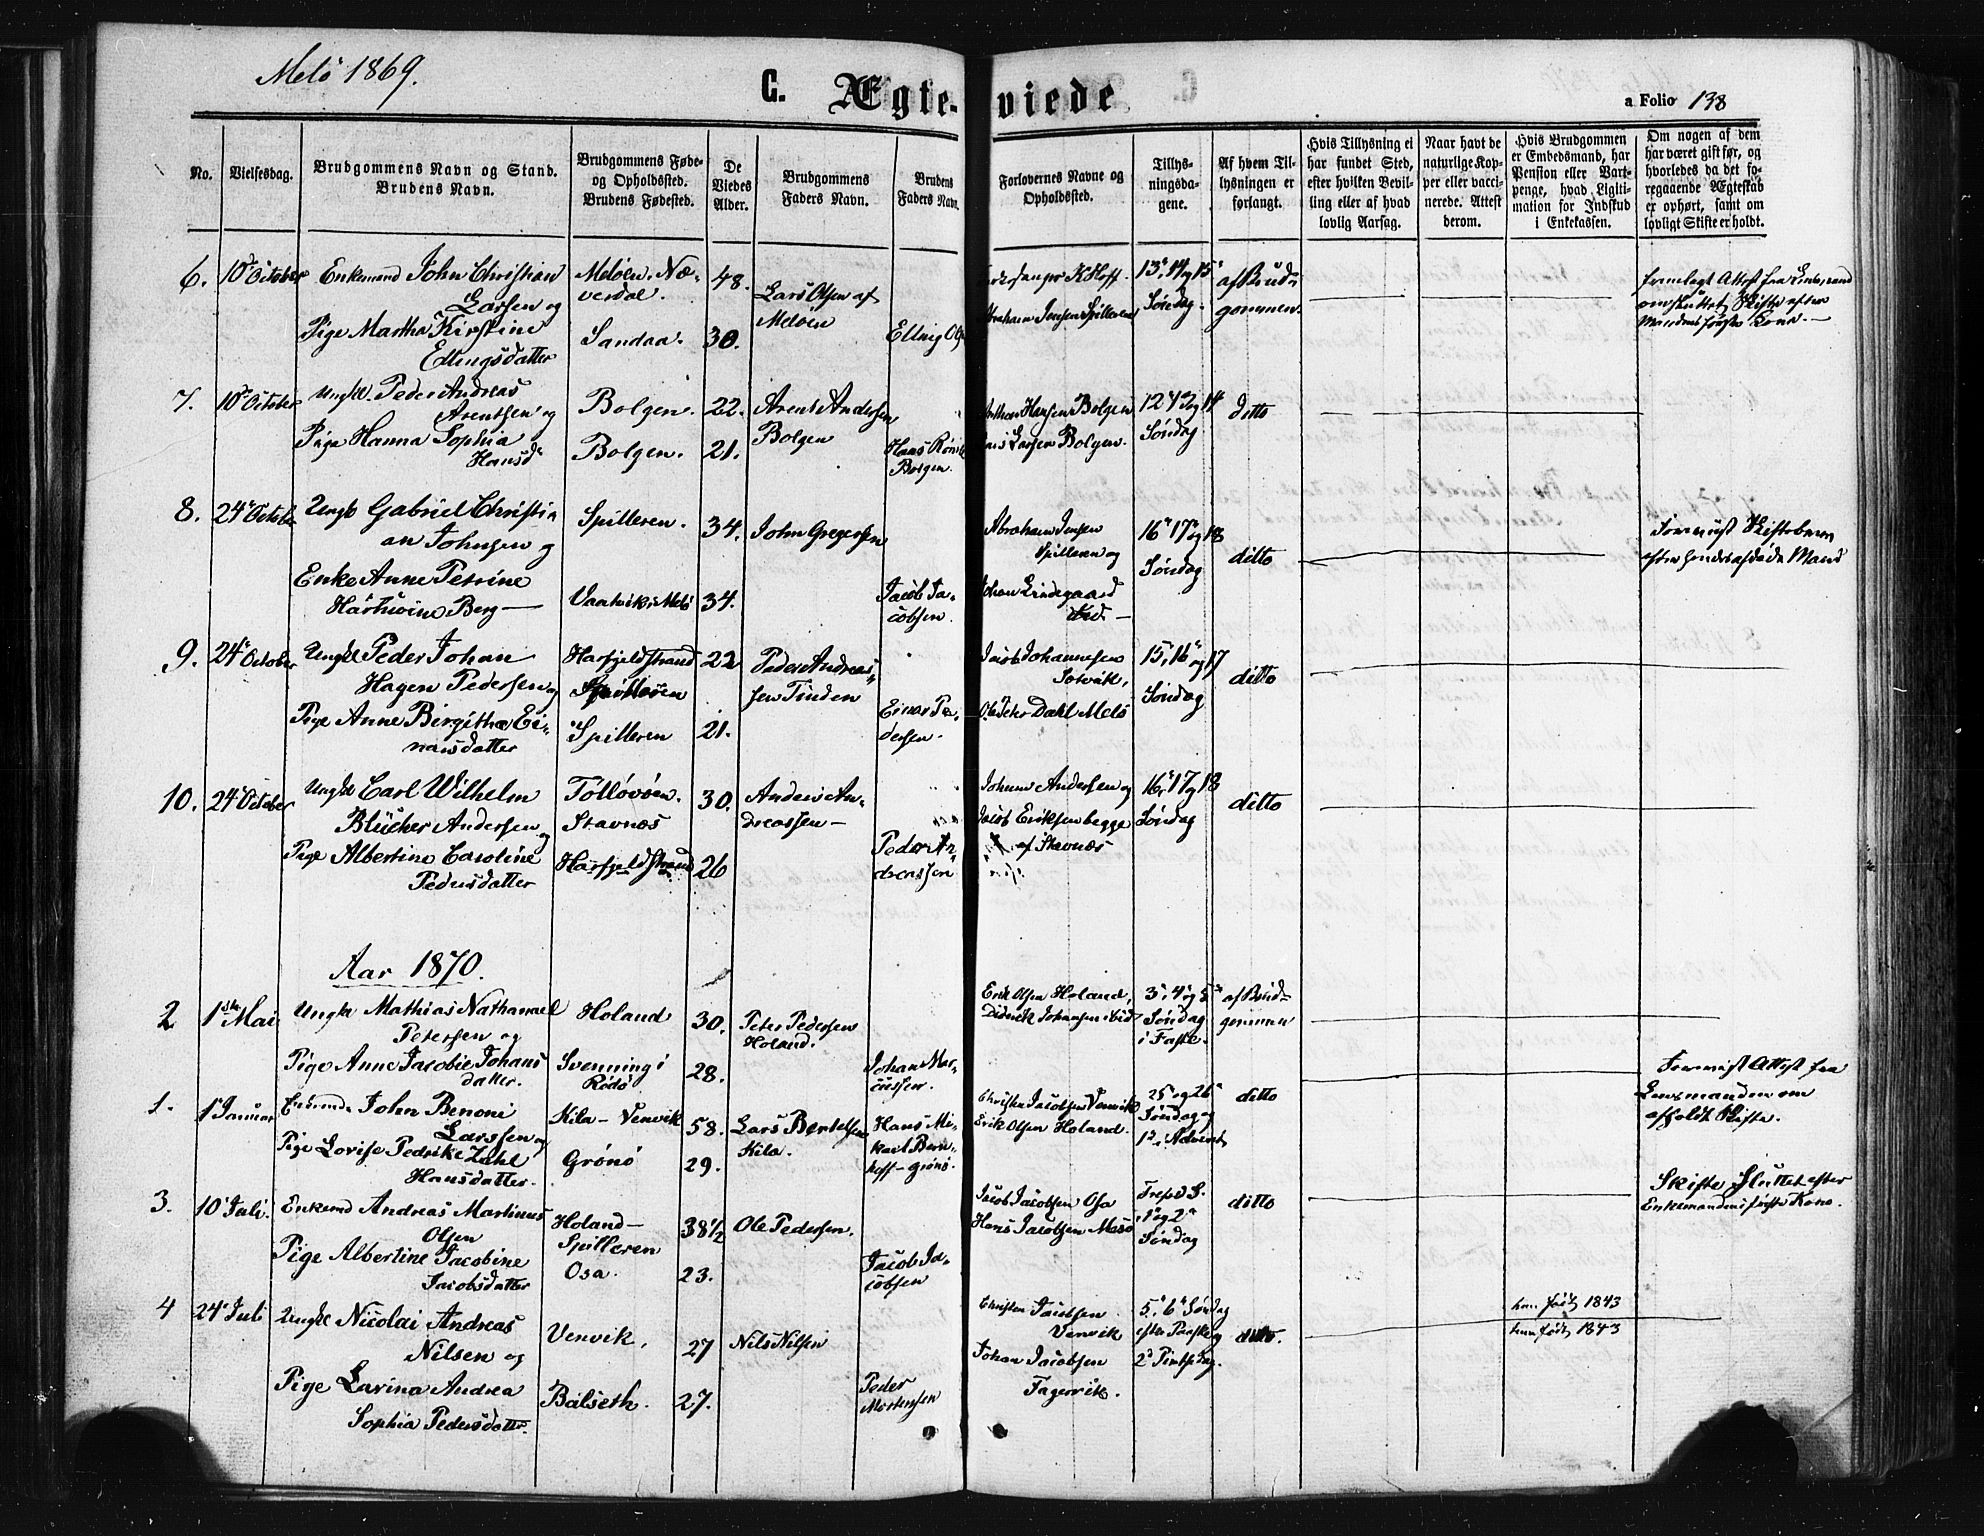 Melö 1869.
C. Ægteviede
a Folio 138
No.
Vielsesdag.
Brudgommens Navn og Stand.
Brudens Navn.
Brudgommens Føde-
og Opholdssted.
Brudens Fødested.
De
Viedes
Alder.
Brudgommens
Faders Navn.
Brudens
Faders Navn.
Forlovernes Navne og
Opholdssted.
Tillys-
ningsda-
gene.
Af hvem Til-
lysningen er
forlangt.
Hvis Tillysning ei
har fundet Sted,
efter hvilken Bevil-
ling eller af hvad
lovlig Aarsag.
Naar havt de
naturlige Kop-
per eller vacci-
nerede. Attest
derom.
Hvis Brudgommen
er Embedsmand, har
Pension eller Vart-
penge, hvad Ligiti-
mation for Indskud
i Enkekassen.
Om nogen af dem
har været gift før, og
hvorledes da det fo-
regaaende Ægteskab
er ophørt, samt om
lovligt Skifte er holdt.
6. 10 October
Enkemand John Christian
Larsen og
Pige Martha Kirstine
Ellingsdatter
Meløen. Næ-
verdal.
Sandaa.
48.
30.
Lars Olsen af
Meløen
Elling
K Hoff.
Abraham Jensen Spilderen
13, 14 og 15
Søndag.
af Brud-
gommen.
fremlagt Attest fra
Skifte efter
Kone.
7. 10 October
Ungk. Peder Andreas
Arentsen og
Pige Hanna Sophia
Hansd
Bolgen.
Bolgen.
22.
21.
Arent Andersen
Bolgen
Hans
Bolgen.
Hansen Bolgen
Larsen Bolgen.
Søndag
ditto
8. 24 October
Ungk Gabriel Christi-
an Johnsen og
Enke Anne Petrine
Hartwine Berg
Spilleren.
Melø
34.
34.
John Gregersen
Jacob Ja-
cobsen.
Abraham Jensen
Spilleren og
Johan Lindegaard
16 17 og 18
Søndag
ditto
efter hendes afdøde Mand
9. 24 October
Ungk Peder Johan
Hagen Pedersen og
Pige Anne Birgitha Ei-
narsdatter
Harfjeldstrand
Spilleren
Spilleren
22
21.
Peder Andreas-
sen Tinden
Einar Pe-
dersen.
Jacob Johannesen
Sørvik,
Ole Peter Dahl Melö
15, 16 og 17
Søndag
ditto
10. 24 October
Ungk Carl Wilhelm
Blücher Andersen og
Pige Albertine Caroline
Pedersdatter
Stavnæs
Harfjeldstrand
30.
26
Anders An-
dreassen
Peder An-
dreassen
Johann Andersen og
Jacob Eriksen begge
af Stavnæs
16, 17 og 18
Søndag
ditto
Aar 1870.
2 1ste Mai
Ungk Mathias Nathanael
Petersen og
Pige Anne Jacobie Johans
datter.
Holand
Svenning i
Rödö
30.
28.
Peter Pedersen
Holand.
Johan Mar-
Erik Olsen Holand,
Didrick Johansen ibid
3, 4 og 5
Søndag
i Faste.
af Brud-
gommen
1. 1 Januar
John Benoni
Larssen og
Pige Lovise Pedrike Zahl
Hansdatter.
Kila - Venvik
Grønø
58.
29.
Lars Bertelsen
Kila.
Hans Mi-
kael Bern-
hoff - Grønø.
Christen Jacobsen Venvik
Erik Olsen Holand.
25 og 26
Søndag og
1 i Advent
ditto
Attest fra
Lensmanden om
afholdt Skifte.
3. 10 Juli.
Enkemd Andreas Martinus
Olsen
Pige Albertine Jacobine
Jacobsdatter
Holand -
Spilleren
Osa.
38½
23.
Ole Pedersen.
Jacob Ja-
cobsen
Jacob Jacobsen Osa
Hans Jacobsen Mesø
1 og 2
Søndag
ditto
Skifte sluttet efter
Enkemandens første Kone.
4 24 Juli
Ungk Nicolai Andreas
Nilsen og
Pige Larina Andrea
Sophia Pedersdatter.
Venvik,
Balseth.
27
27.
Nils Nilsen
Peder
Mortensen
Christen Jacobsen
Venvik
Johan Jacobsen
Fagervik.
5, 6 Søndag
efter Paaske og
2 Pintsedag.
ditto.
han født 1843
hun født 1843